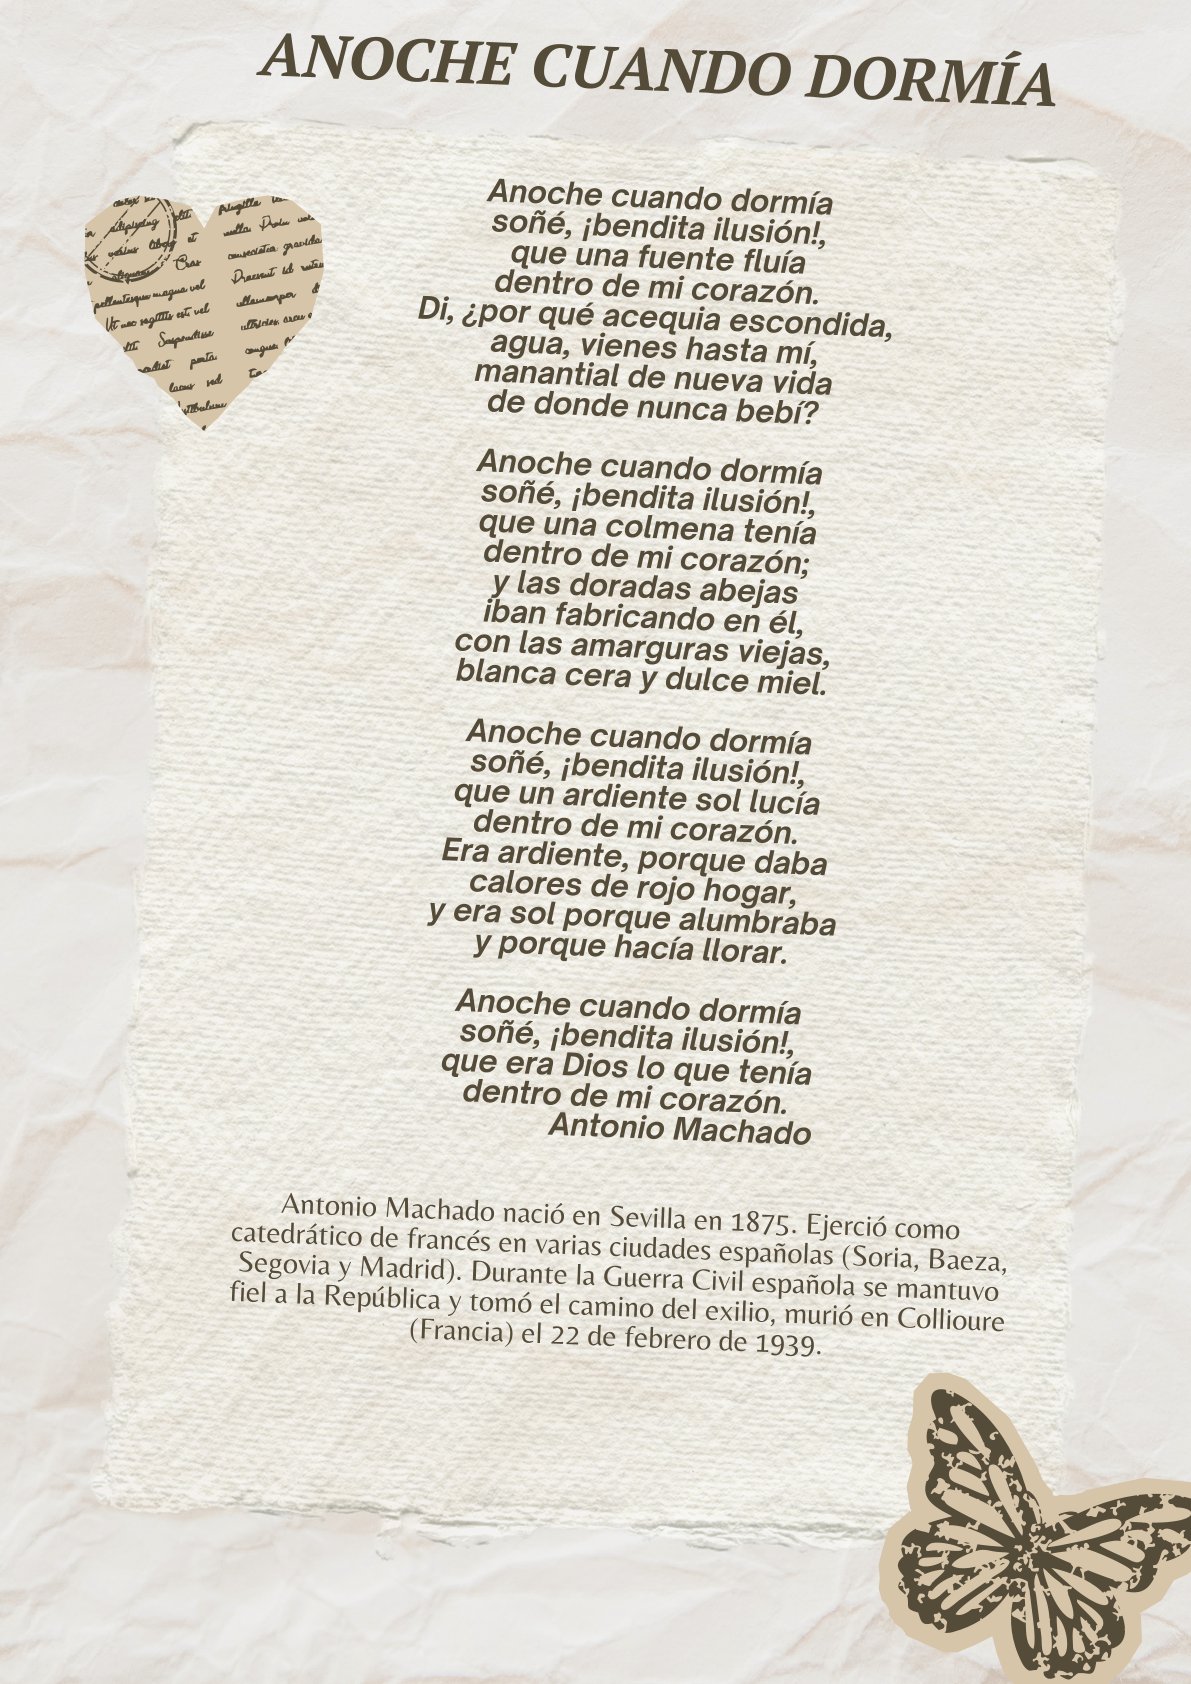 ANOCHE CUANDO DORMÍA
Anoche cuando dormía
soñé, ¡bendita ilusión!,
que una fuente fluía
dentro de mi corazón.
Di, ¿por qué acequia escondida,
agua, vienes hasta mí,
manantial de nueva vida
de donde nunca bebí?
Anoche cuando dormía
soñé, ¡bendita ilusión!,
que una colmena tenía
dentro de mi corazón;
y las doradas abejas
iban fabricando en él,
con las amarguras viejas,
blanca cera y dulce miel.
Anoche cuando dormía
soñé, ¡bendita ilusión!,
que un ardiente sol lucía
dentro de mi corazón.
Era ardiente, porque daba
calores de rojo hogar,
y era sol porque alumbraba
y porque hacía llorar.
Anoche cuando dormía
soñé, ¡bendita ilusión!,
que era Dios lo que tenía
dentro de mi corazón.
Antonio Machado
Antonio Machado nació en Sevilla en 1875. Ejerció como
catedrático de francés en varias ciudades españolas (Soria, Baeza,
Segovia y Madrid). Durante la Guerra Civil española se mantuvo
fiel a la República y tomó el camino del exilio, murió en Collioure
(Francia) el 22 de febrero de 1939.